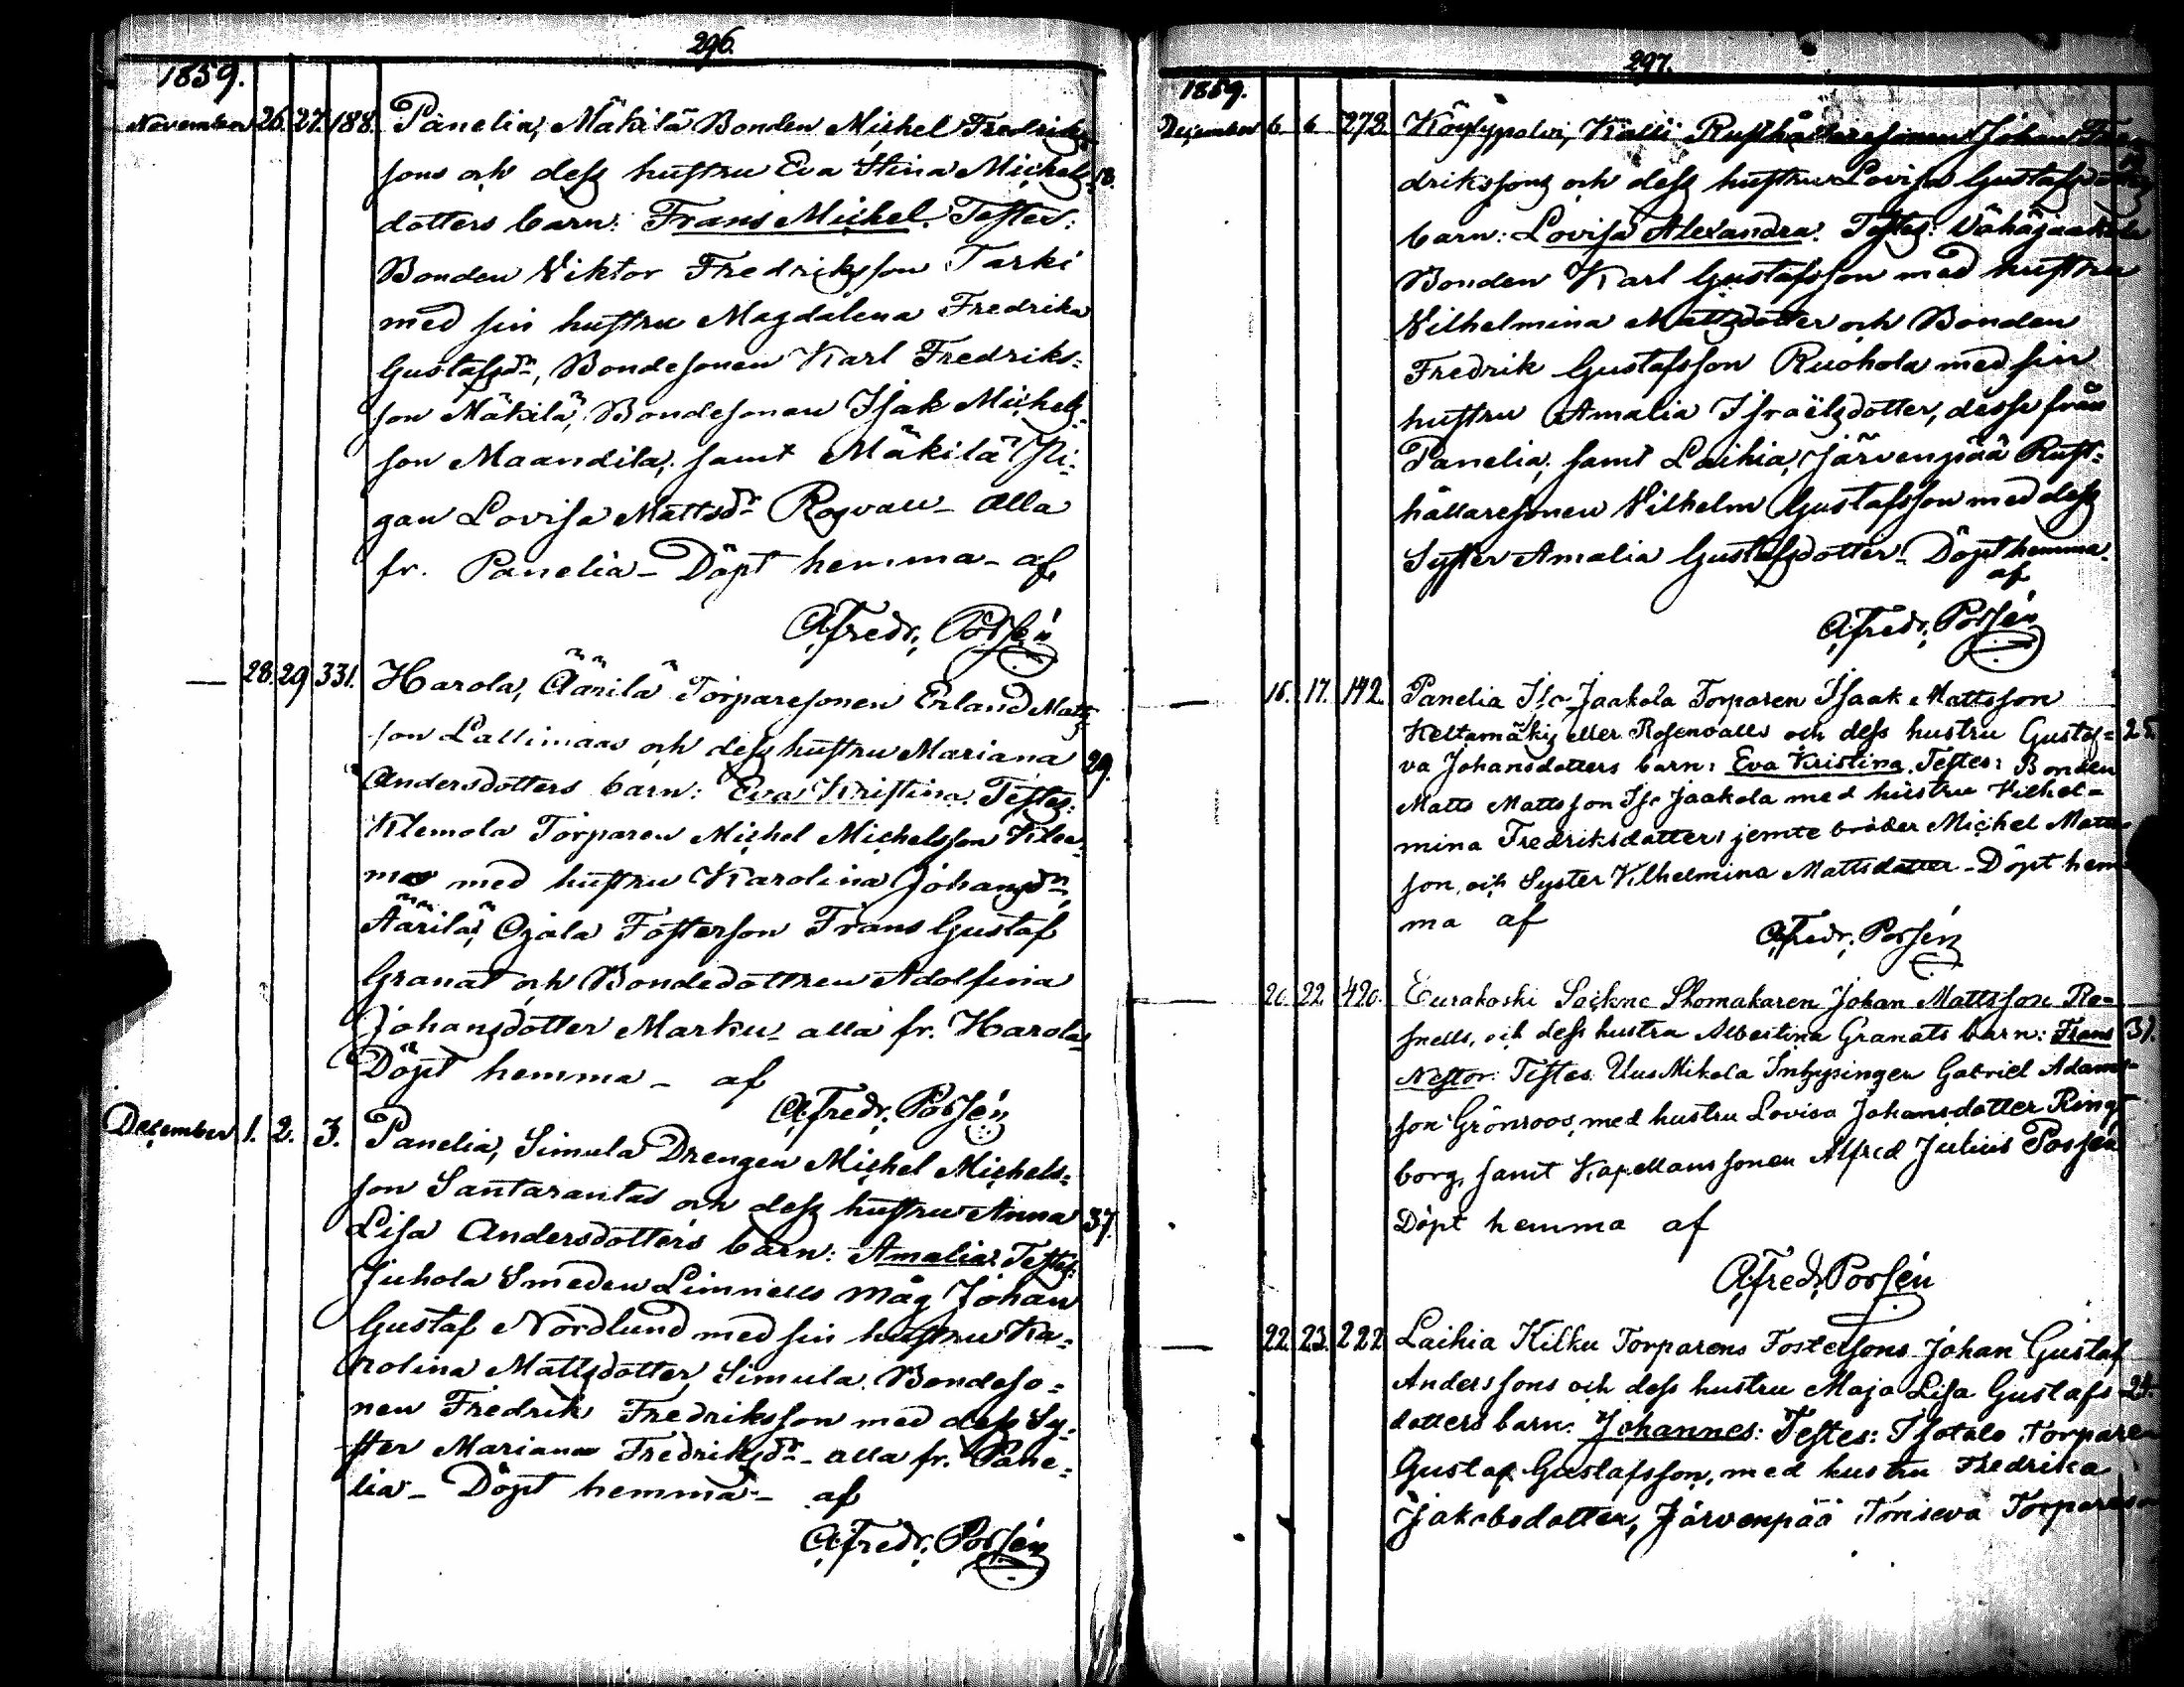 296.
1859.
November 26. 27. 188. Panelia, Mäkilä Bonden Michel Fredriks-
sons och dess hustru Eva Stina Michels- 18.
dotters barn: Frans Michel. Testes:
Bonden Viktor Fredriksson Tarki
med sin hustru Magdalena Fredrika
Gustafsdr, Bondesonen Karl Fredriks-
son Mäkilä, Bondesonen Isak Michels-
son Maandila, samt Mäkilä Pi-
gan Lovisa Mattsdr Rosvall - alla
fr. Panelia - Döpt hemma - af
A. Fredr. Possén
— 28. 29 331. Harola, Äärilä Torparesonen Erland Matts-
son Lallimaas och dess hustru Mariana 29.
Andersdotters barn: Eva Kristina. Testes:
Klemola Torparen Michel Michelsson
med hustru Karolina Johansdr,
Äärilä, Ojala Fosterson Frans Gustaf
Granat och Bondedottren Adolfina
Johansdotter Marku - alla fr. Harola
Döpt hemma - af
A. Fredr. Possén
December 1. 2. 3. Panelia, Simula Drengen Michel Michels-
son Santarantas och dess hustru Anna 37.
Lisa Andersdotters barn: Amalia. Testes:
Juhola Smeden Limnells måg Johan
Gustaf Nordlund med sin hustru Ka-
rolina Mattsdotter, Simula Bondeso-
nen Fredrik Fredriksson med dess Sy-
ster Mariana Fredriksdr - alla fr. Pane-
lia - Döpt hemma - af
A. Fredr. Possén
297.
1859.
December 6. 6. 273. Köylypolvi, Kalli Rusthållaresonen Johan Fre-
drikssons och dess hustru Lovisa Gustafsdotters
barn: Lovisa Alexandra. Testes: Vähäjaakola
Bonden Karl Gustafsson med hustru
Vilhelmina Mattsdotter och Bonden
Fredrik Gustafsson Ruohola med sin
hustru Amalia Israëlsdotter, desse från
Panelia, samt Laihia, Järvenpää Rust-
hållaresonen Vilhelm Gustafsson med dess
Syster Amalia Gustafsdotter - Döpt hemma.
af
A. Fredr. Possén
— 16. 17. 142. Panelia Iso-Jaakola Torparen Isaak Mattsson
Keltamäkis eller Rosenvalls och dess hustru Gusta- 25.
va Johansdotters barn: Eva Kristina. Testes: Bonden
Matts Mattsson Iso Jaakola med hustru Vilhel-
mina Fredriksdotter, jemte broder Michel Matts-
son, och Syster Vilhelmina Mattsdotter - Döpt hem-
ma af
A. Fredr. Possén
— 20. 22. 420. Eurakoski Sockne Skomakaren Johan Mattsson Re-
snells, och dess hustru Albertina Granats barn: Frans 31.
Nestor: Testes: Uus Mikola Inhysingen Gabriel Adams-
son Grönroos, med hustru Lovisa Johansdotter Ring-
borg, samt Kapellans sonen Alfred Julius Possén
Döpt hemma af
A. Fredr. Possén
— 22. 23. 222 Laihia Kilku Torparens Fostersons Johan Gustaf
Anderssons och dess hustru Maja Lisa Gustafs- 24.
dotters barn: Johannes: Testes: Isotalo Torparen
Gustaf Gustafsson, med hustru Fredrika
Jakobsdotter, Järvenpää Torpareson